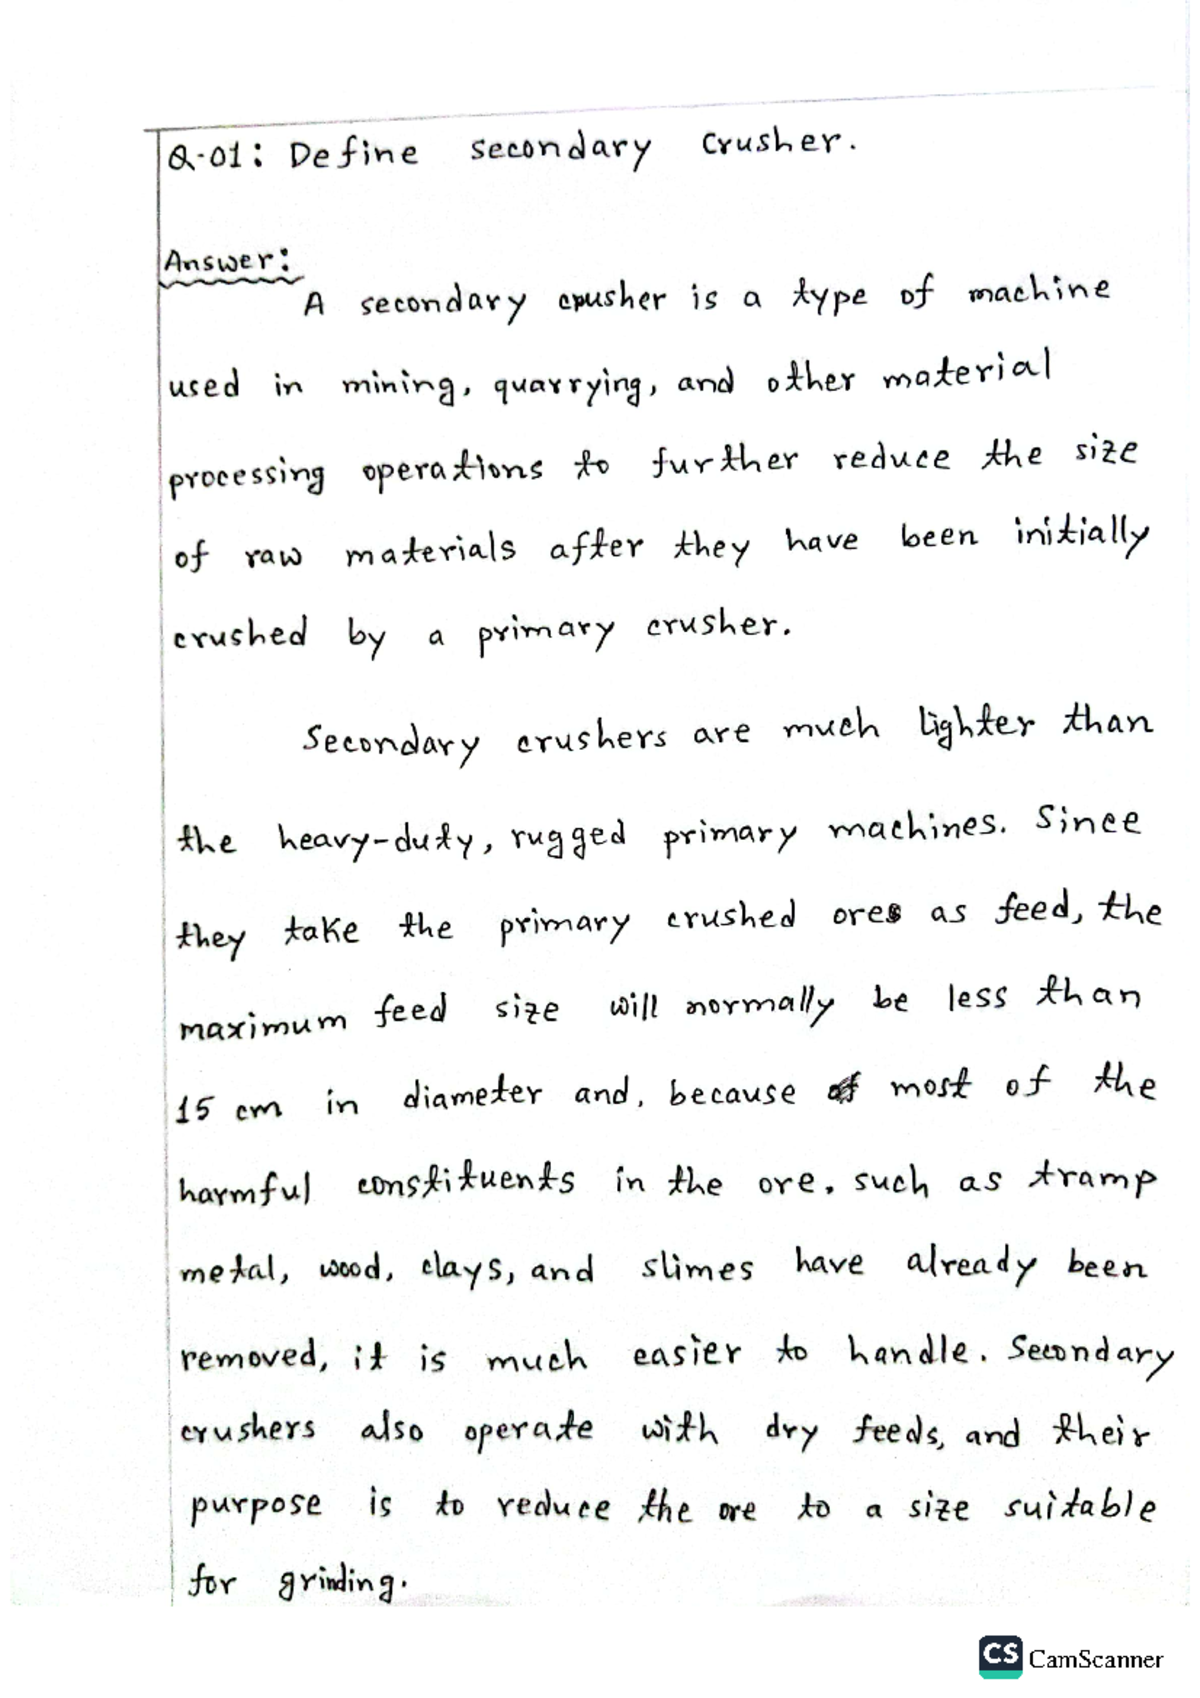 Q-01: Define secondary crusher.
Answer:
A secondary crusher is a type of machine
used in mining, quarrying, and other material
processing operations to further reduce the size
of raw materials after they have been initially
crushed by a primary crusher.
Secondary crushers are much lighter than
the heavy-duty, rugged primary machines. Since
they take the primary crushed ores as feed, the
maximum feed size will normally be less than
15 cm in diameter and, because most of the
harmful constituents in the ore, such as tramp
metal, wood, clays, and slimes have already been
removed, it is much easier to handle. Secondary
crushers also operate with dry feeds, and their
purpose is to reduce the ore to a size suitable
for grinding.
CS CamScanner